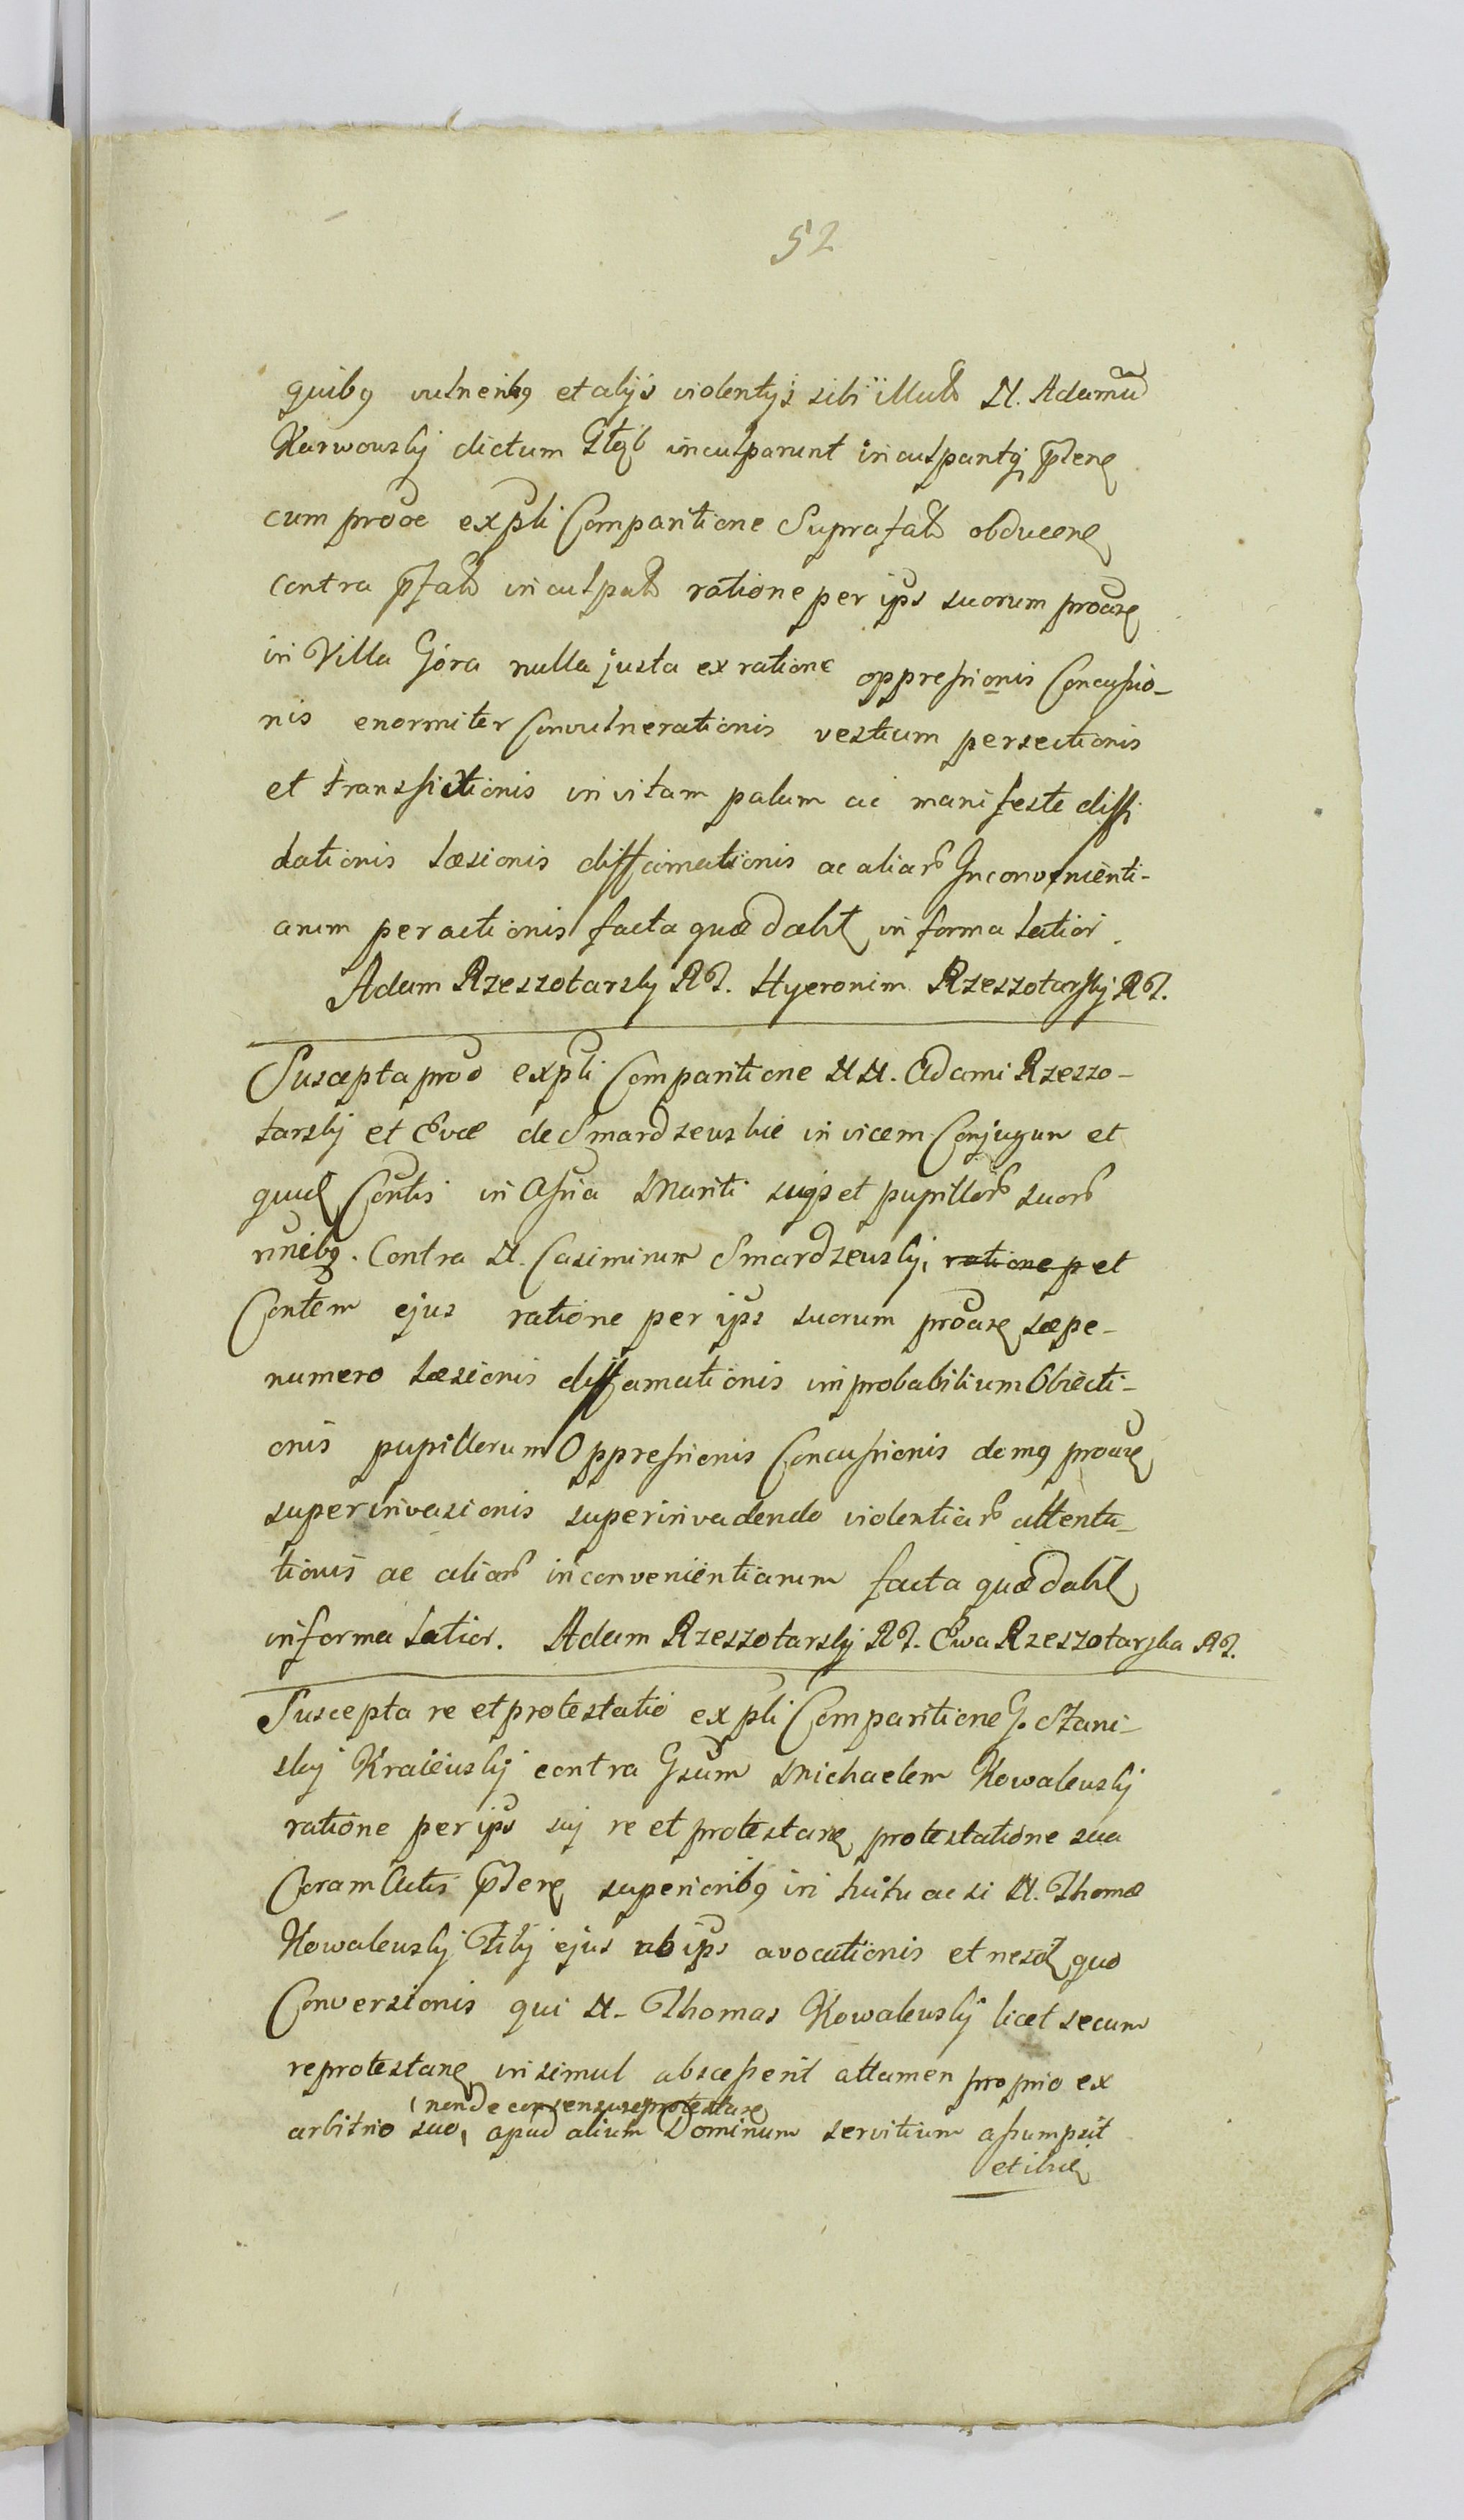 52
quibꝯ vulneribꝯ et alijs violentijs sibi illatis N. Adamum
Karwowskij dictum inculparunt inculpantqꝫ pñtem
cum proõe expti Comparitione Suprafatis obducen
contra pfat inculpat ratione per ips suorum proãre
in Villa Góra nulla justa ex ratione oppressionis Concussio-
nis enormiter Convulnerationis vestium persectionis
et transfictionis in vitam palam ac manifeste diffi
dationis læsionis diffamationis ac aliar Inconvenienti-
arum peractionis facta quæ dabit in forma latior.
Adam Rzeszotarskij RP. Hyeronim Rzeszotarskij RP.
Suscepta proõ expti Comparitione NN. Adami Rzeszo-
tarskij et Evæ de Smardzewskie invicem Conjugum et
quid Contis in Assia Mariti sui ips et pupillor suor
nnibꝯ. Contra N. Casimirum Smardzewskij, ratione p et
Contem ejus ratione per ips suorum proãre sæpe-
numero læsionis diffamationis improbabilium Obiecti-
onis pupillorum Oppressionis Concussionis domꝯ proãre
superinvasionis superinvadendo violentiar attenta-
tionis ac aliar inconvenientiarum facta quæ dabit
in forma latior. Adam Rzeszotarskij RP. Ewa Rzeszotarska RP.
Suscepta re et protestatio expti Comparitione G. Stani-
slaj Kraiewskij contra Gsum Michaelem Kowalewskij
ratione per ips suj re et protestare protestatione sua
Coram Actis pñtere superioribꝯ in situ ac si N. Thomæ
Kowalewskij Filij ejus ab ips avocationis et nescit quo
Conversionis qui N. Thomas Kowalewskij licet secum
reprotestane insimul abscesserit attamen proprio ex
non de consensu reprotestare
arbitrio suo, apud alium Dominum servitium assumpsit
et ibid